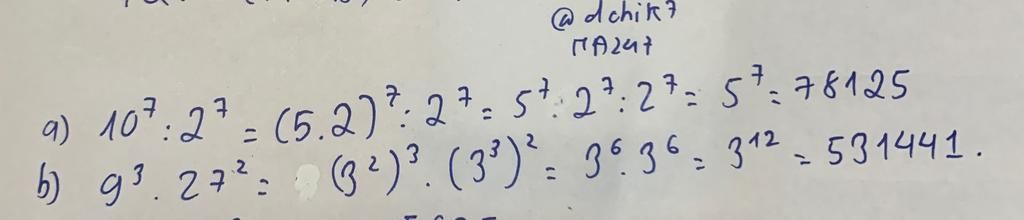 @dchik7
MA247
a) 10⁷ : 2⁷ = (5.2)⁷ : 2⁷ = 5⁷ . 2⁷ : 2⁷ = 5⁷ = 78125
b) 9³ . 27² = (3²)³ . (3³)² = 3⁶ . 3⁶ = 3¹² = 531441.